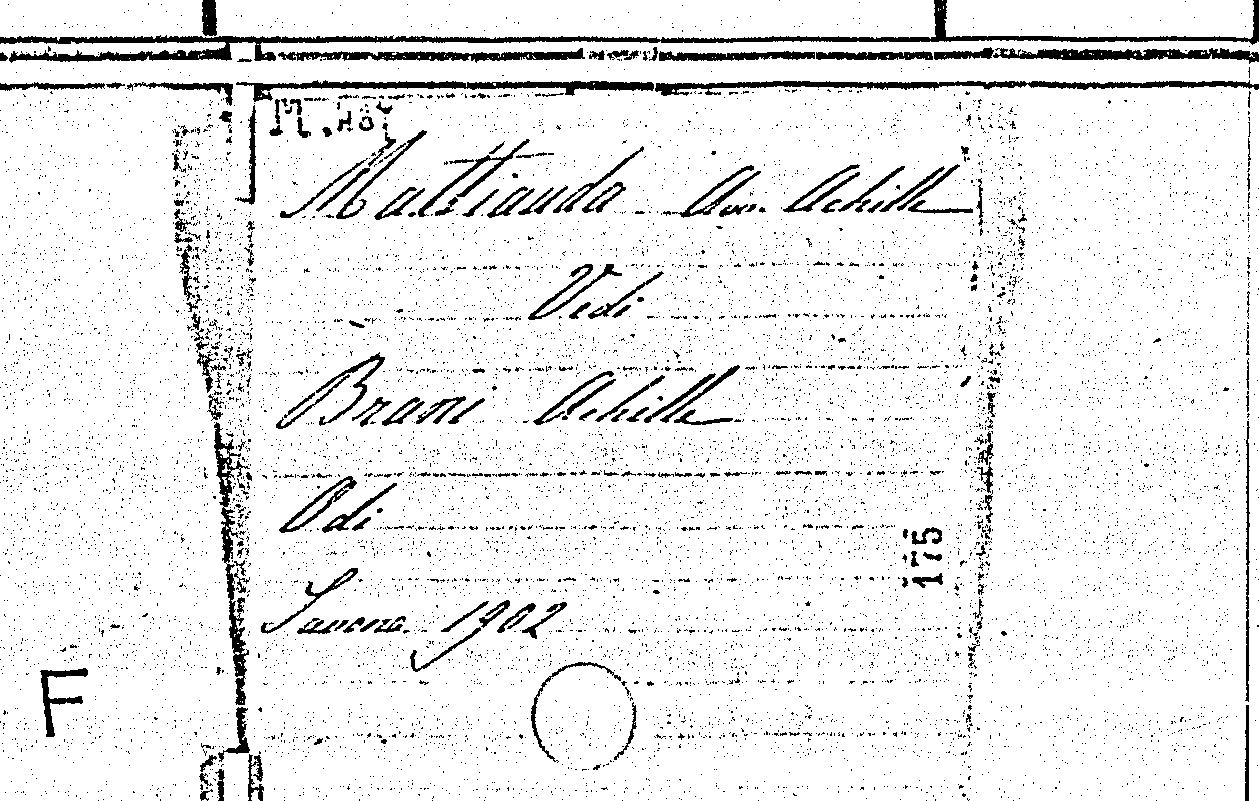 Mattiauda Avv. Achille
Vedi
Brani Achille
Odi
Savona 1902
175
F